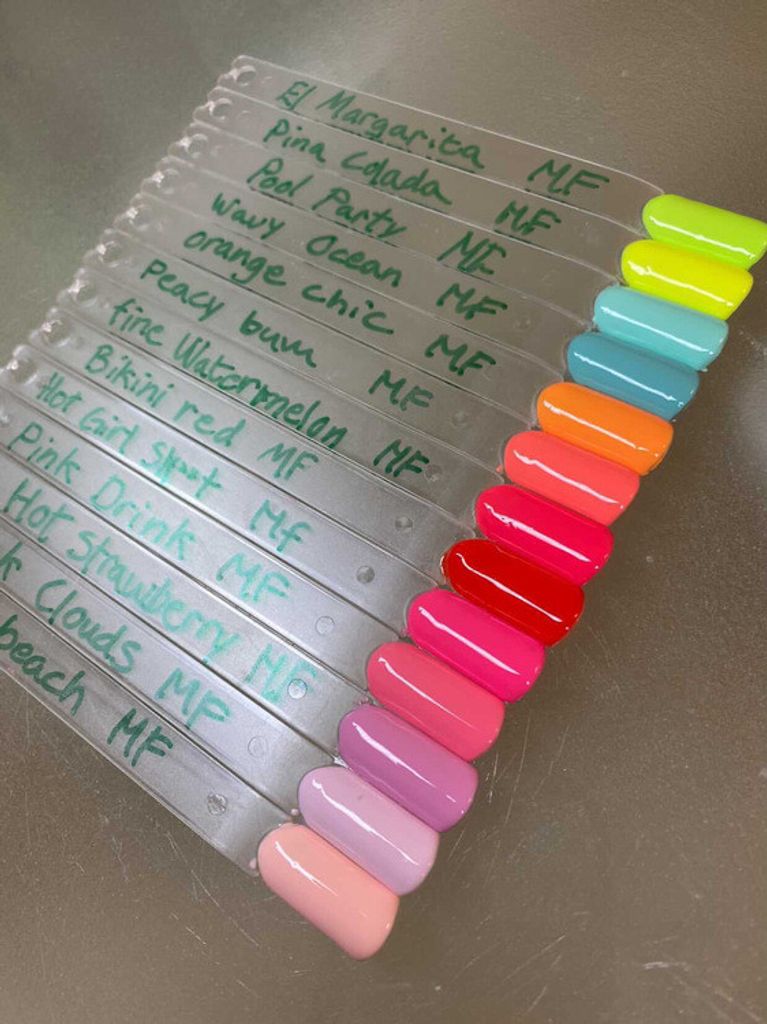 El Margarita MF
Pina Colada MF
Pool Party MF
Wavy Ocean MF
orange chic MF
Peacy bum MF
fine Watermelon MF
Bikini red MF
Hot Girl MF
Pink Drink MF
Hot Strawberry MF
k Clouds MF
beach MF